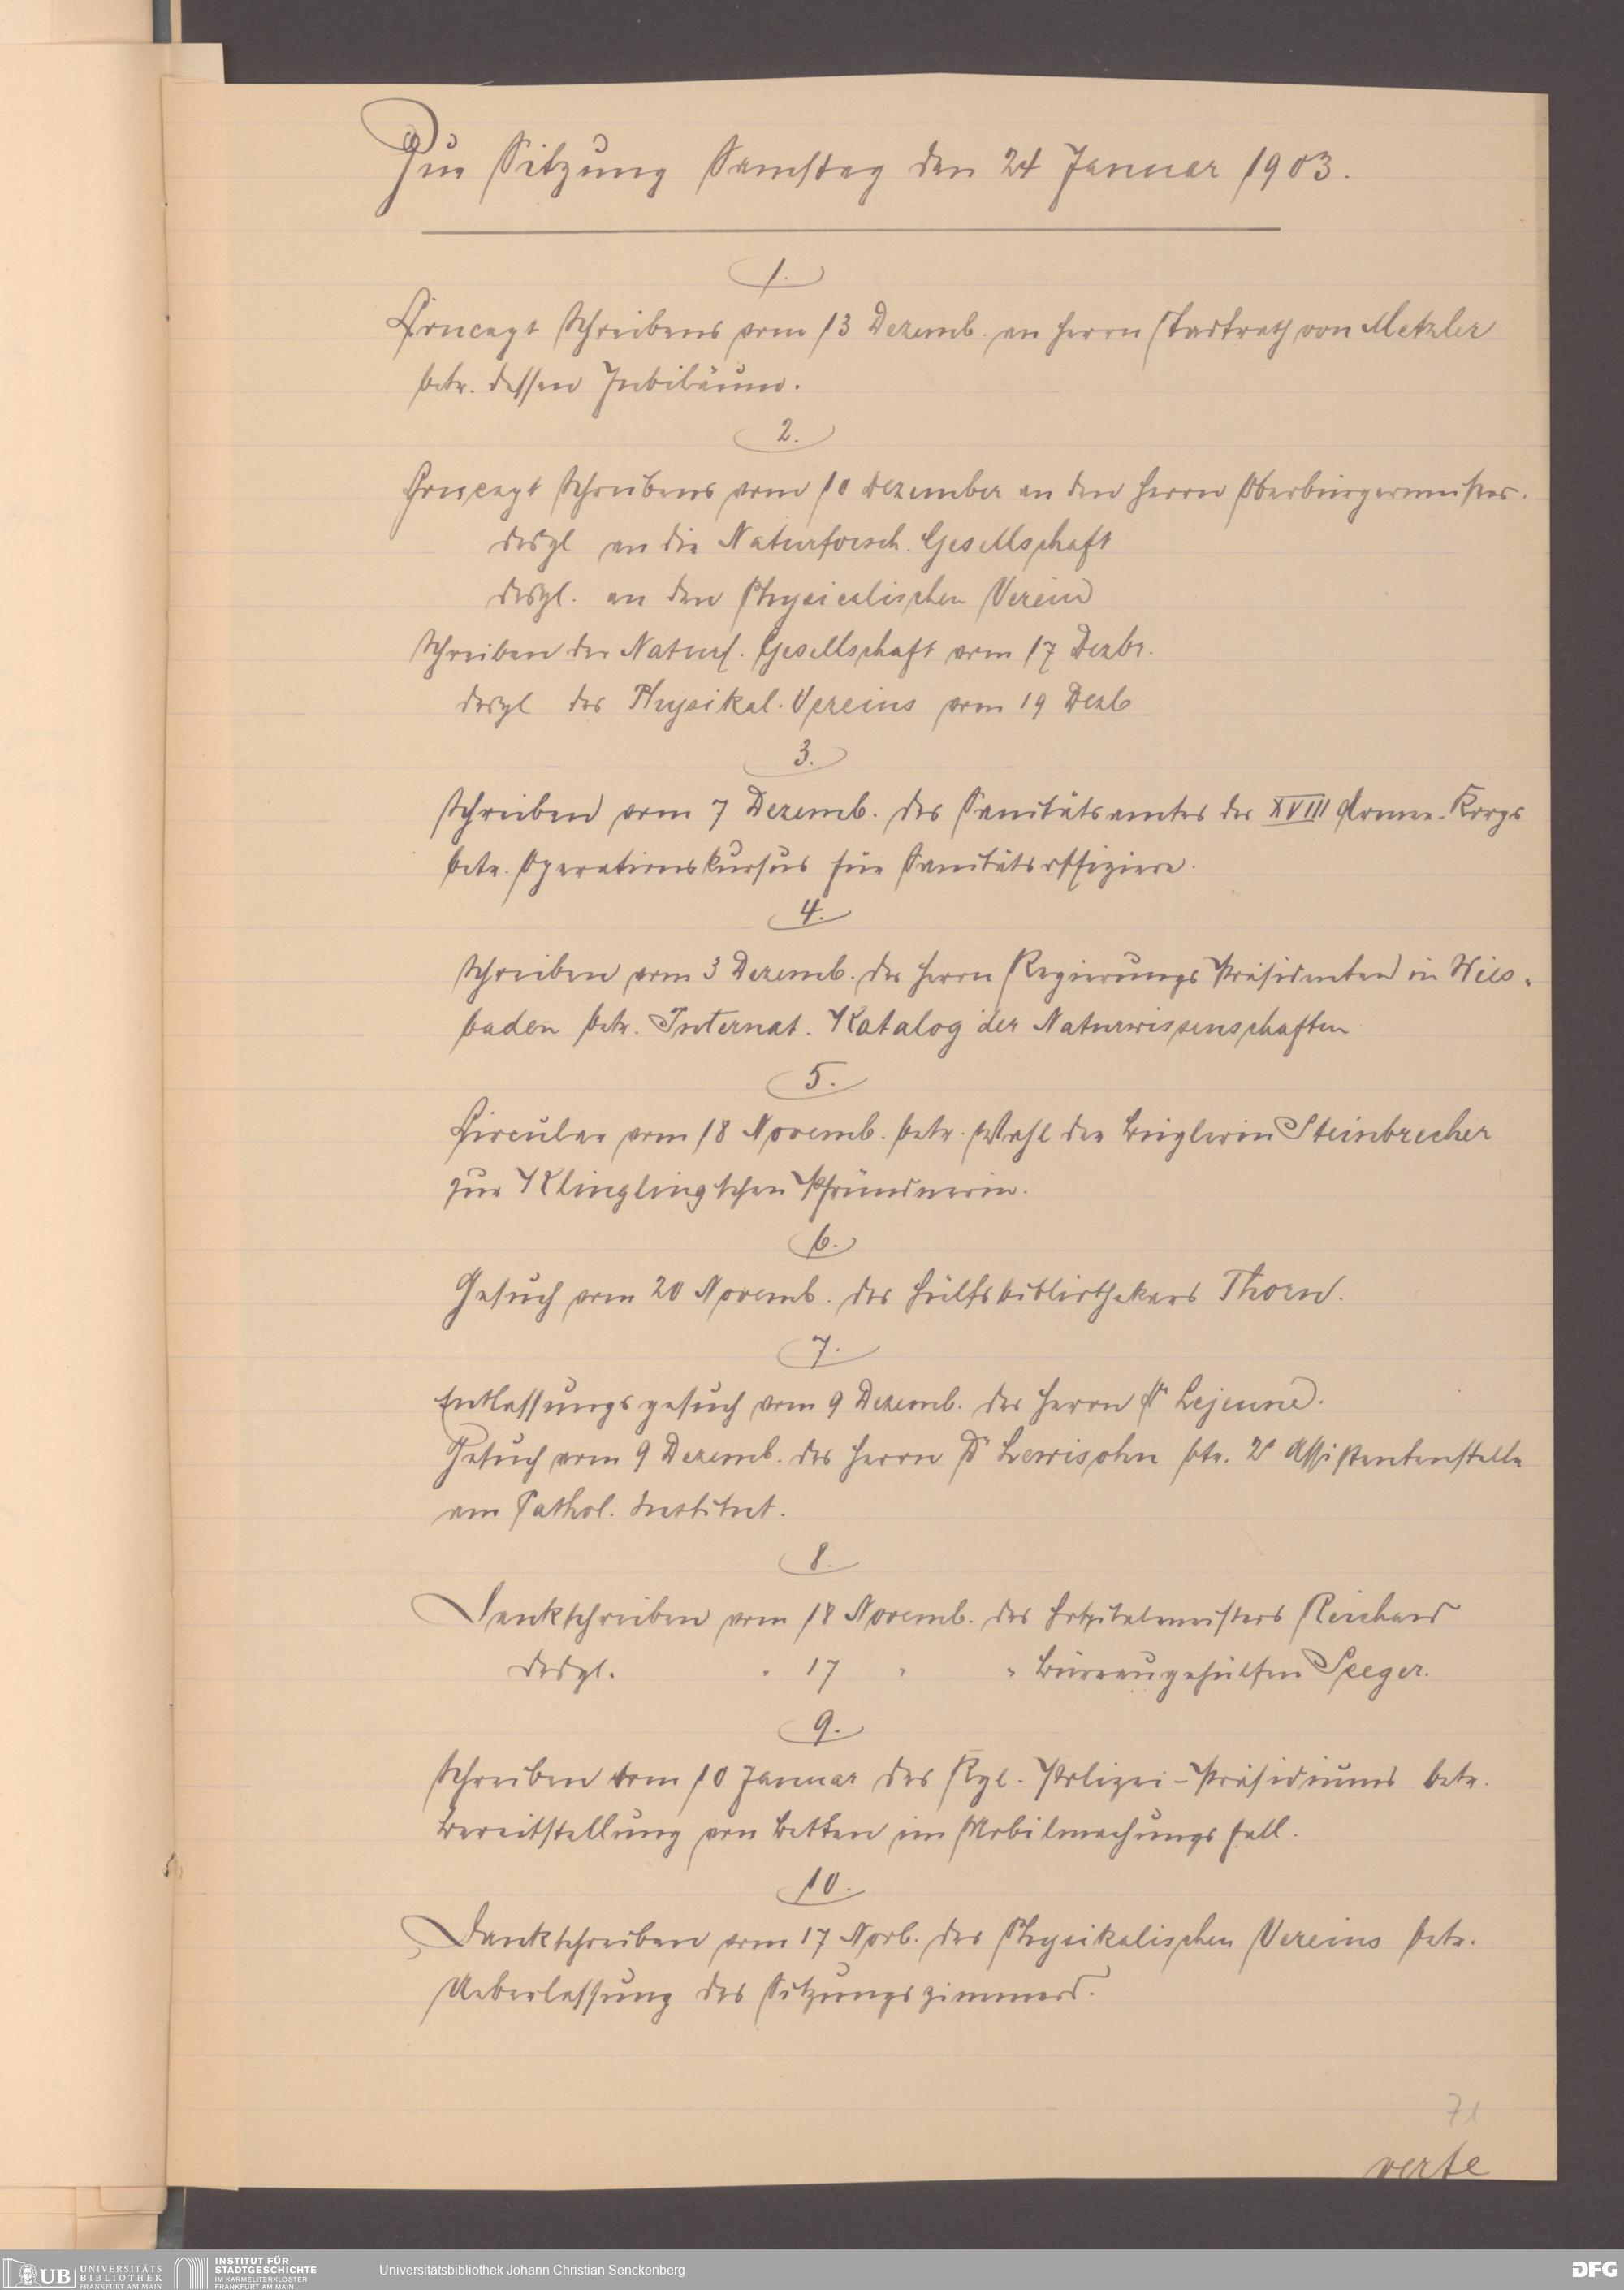 Zur Sitzung Samstag den 24 Januar 1903.
1.
Concept Schreibens vom 13 Dezemb. an Herrn Stadtrath von Metzler
betr. dessen Jubiläum.
2.
Concept Schreibens vom 10 Dezember an den Herrn Oberbürgermeister.
desgl an die Naturforsch. Gesellschaft
desgl. an den Physicalischen Verein
Schreiben der Naturf. Gesellschaft vom 17 Dezbr.
desgl des Physikal. Vereins vom 19 Dezb
3.
Schreiben vom 7 Dezemb. des Sanitätsamtes des XVIII Armee-Korps
betr. Operationskursus für Sanitätsoffiziere.
4.
Schreiben vom 3 Dezemb. des Herrn Regierungs Präsidenten in Wies-
baden betr. Internat. Katalog der Naturwissenschaften
5.
Circular vom 18 Novemb. betr. Wahl der Büglerin Steinbrecher
zur Klinglingschen Pfründnerin.
6.
Gesuch vom 20 Novemb. des Hülfsbibliothekars Thorn.
7.
Entlassungsgesuch vom 9 Dezemb. des Herrn Dr Lejeune.
Gesuch vom 9 Dezemb. des Herrn Dr Lewisohn btr. 2te Assistentenstelle
am Pathol. Institut.
8.
Dankschreiben vom 18 Novemb. des Hospitalmeisters Reichard
desgl. " 17 " " Büreaugehülfen Seeger.
9.
Schreiben vom 10 Januar des Kgl. Polizei-Präsidiums betr.
Bereitstellung von Betten im Mobilmachungsfall.
10.
Dankschreiben vom 17 Novb. des Physikalischen Vereins betr.
Ueberlassung des Sitzungszimmers.
71
verte
UB UNIVERSITÄTS
BIBLIOTHEK
FRANKFURT AM MAIN
INSTITUT FÜR
STADTGESCHICHTE
IM KARMELITERKLOSTER
FRANKFURT AM MAIN
Universitätsbibliothek Johann Christian Senckenberg
DFG